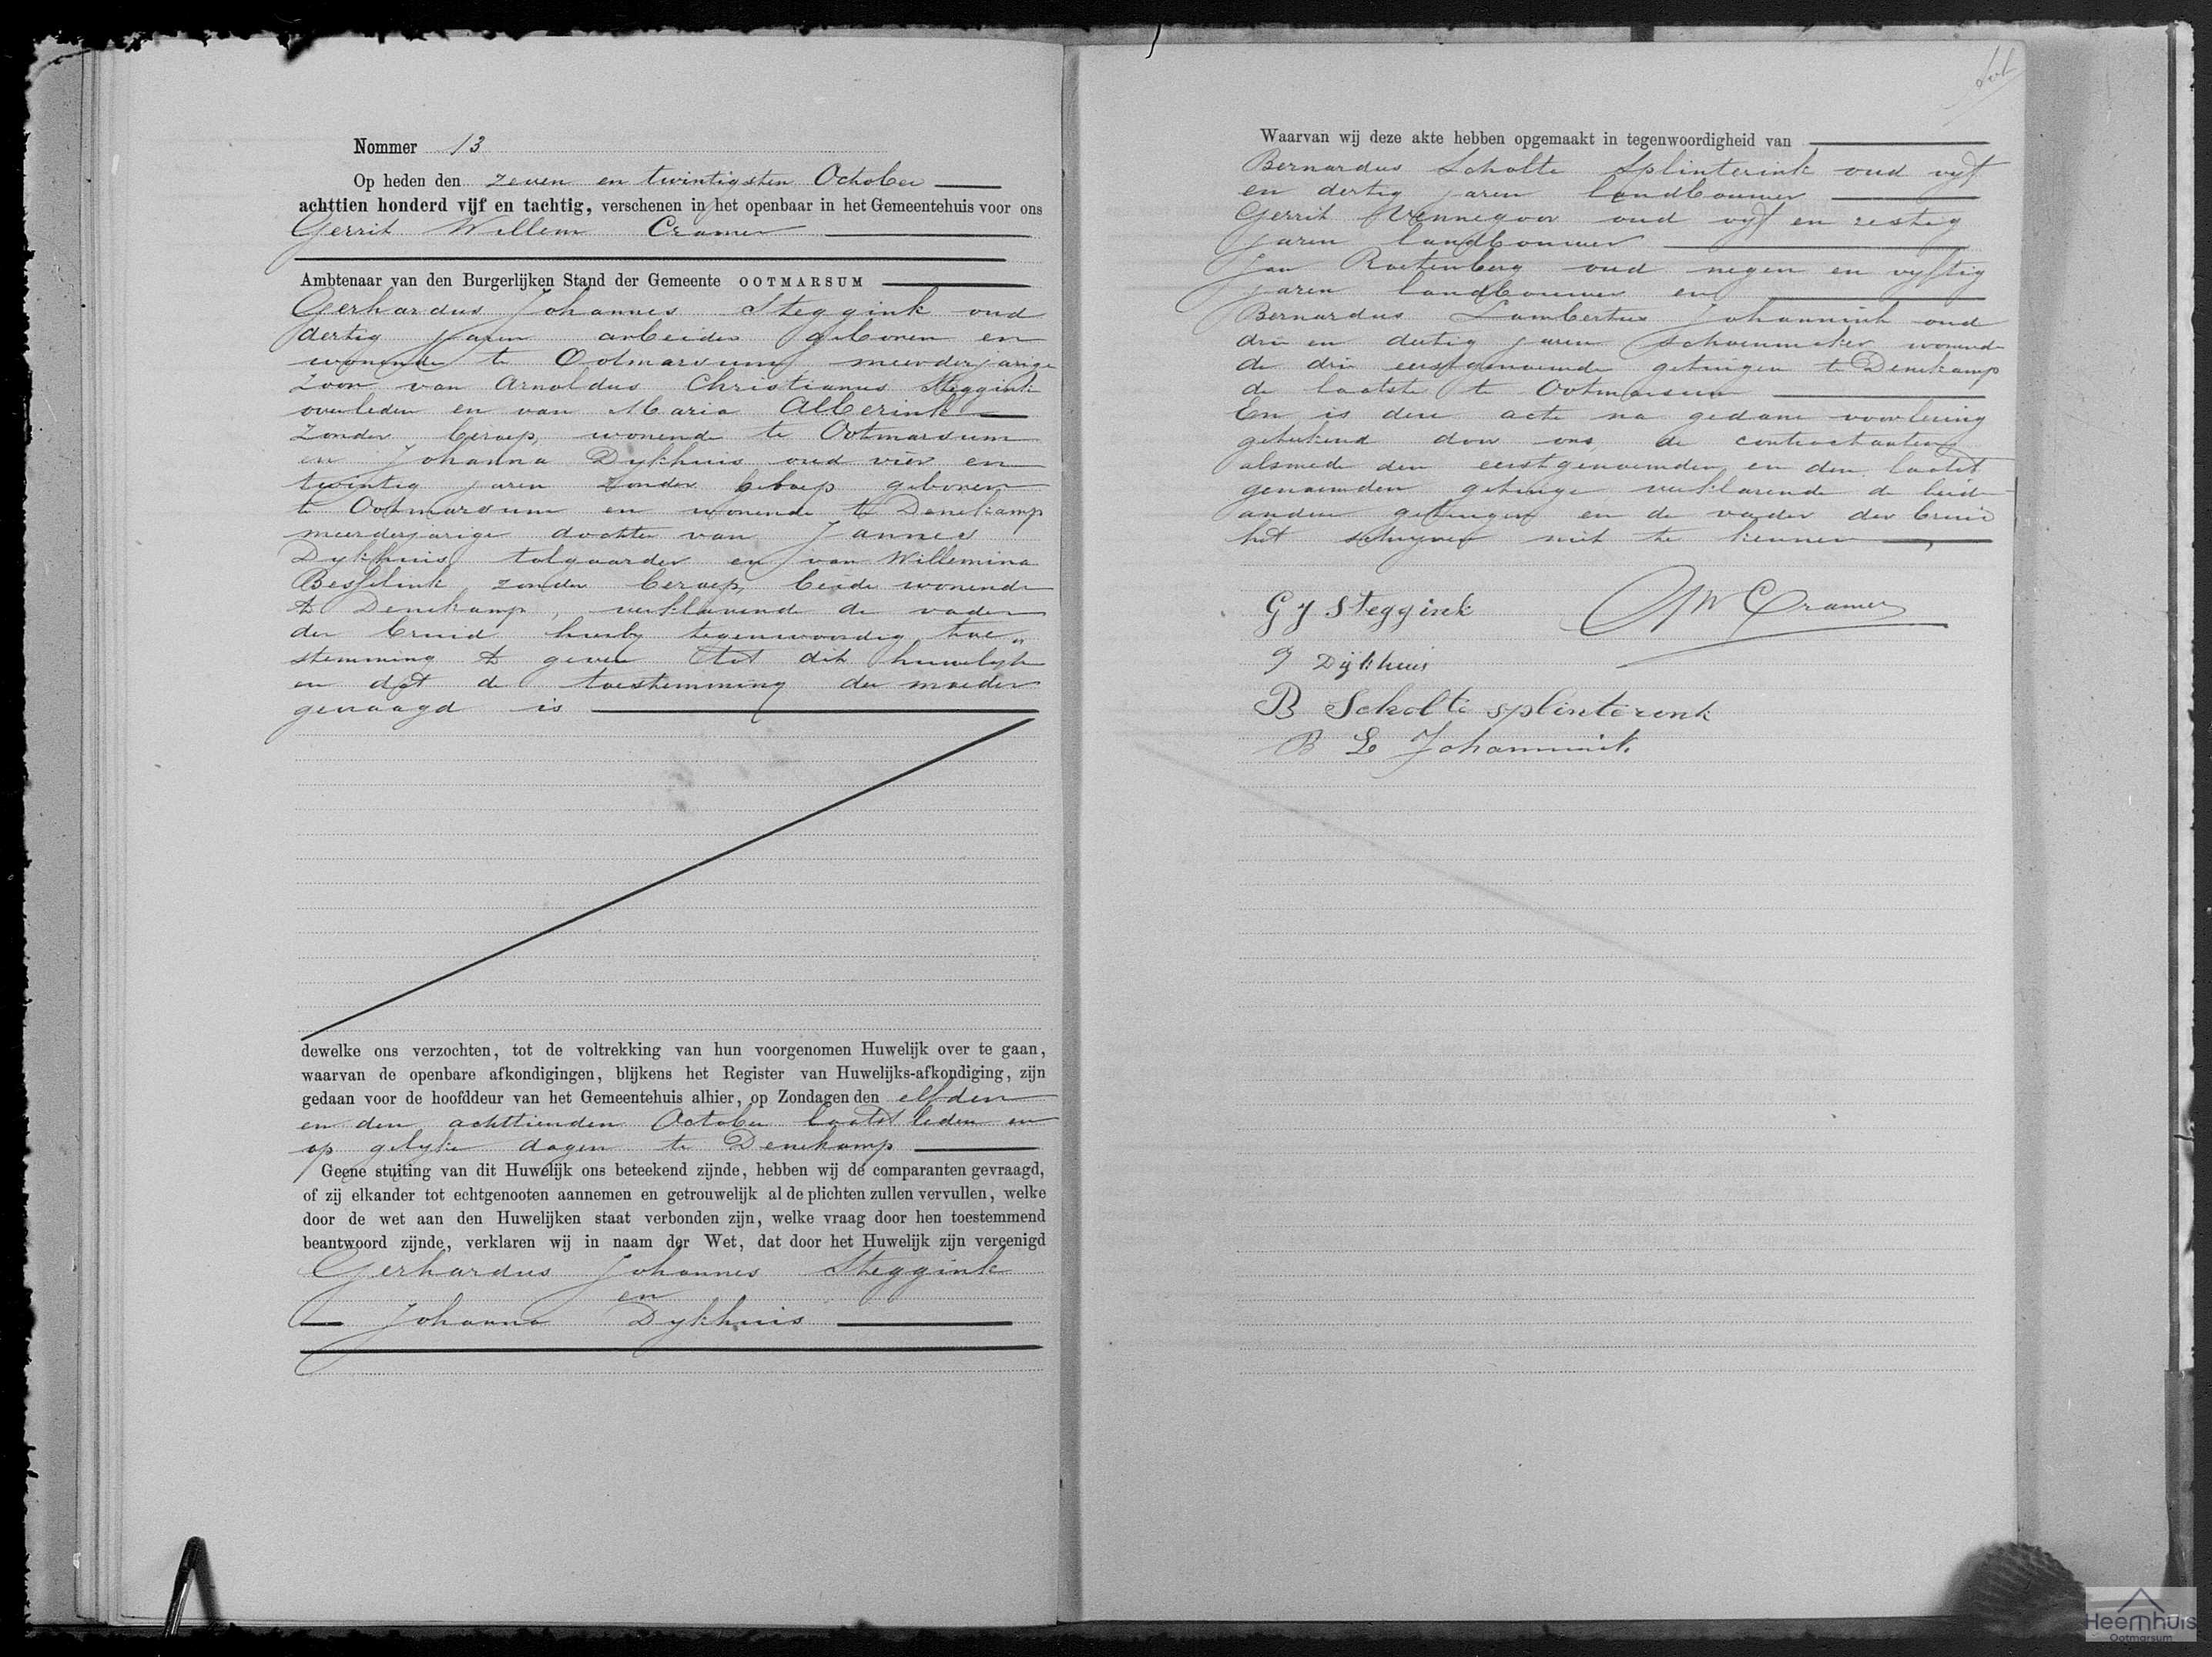 Nommer 13
Op heden den zeven en twintigsten October
achttien honderd vijf en tachtig, verschenen in het openbaar in het Gemeentehuis voor ons
Gerrit Willem Cramer
Ambtenaar van den Burgerlijken Stand der Gemeente OOTMARSUM
Gerhardus Johannes Steggink oud
dertig jaren arbeider geboren en
wonende te Ootmarsum meerderjarige
zoon van Arnoldus Christianus Steggink
overleden en van Maria Alberink
zonder beroep, wonende te Ootmarsum
en Johanna Dykhuis oud vier en
twintig jaren zonder beroep geboren
te Ootmarsum en wonende te Denekamp
meerderjarige dochter van Jannes
Dykhuis tolgaarder en van Willemina
Besselink zonder beroep, beide wonende
te Denekamp, verklarende de vader
der bruid hierby tegenwoordig toe„
stemming te geven tot dit huwelyk
en dat de toestemming der moeder
gevraagd is
dewelke ons verzochten, tot de voltrekking van hun voorgenomen Huwelijk over te gaan,
waarvan de openbare afkondigingen, blijkens het Register van Huwelijks-afkondiging, zijn
gedaan voor de hoofddeur van het Gemeentehuis alhier, op Zondagen den elfden
en den achttienden October laatstleden en
op gelyke dagen te Denekamp
Geene stuiting van dit Huwelijk ons beteekend zijnde, hebben wij de comparanten gevraagd,
of zij elkander tot echtgenooten aannemen en getrouwelijk al de plichten zullen vervullen, welke
door de wet aan den Huwelijken staat verbonden zijn, welke vraag door hen toestemmend
beantwoord zijnde, verklaren wij in naam der Wet, dat door het Huwelijk zijn vereenigd
Gerhardus Johannes Steggink
en
Johanna Dykhuis
Waarvan wij deze akte hebben opgemaakt in tegenwoordigheid van
Bernardus Scholte Splinterink oud vyf
en dertig jaren landbouwer
Gerrit Vennegoor oud vyf en zestig
jaren landbouwer
Jan Roetenberg oud negen en vyftig
jaren landbouwer en
Bernardus Lambertus Johannink oud
drie en dertig jaren schoenmaker wonende
de drie eerstgenoemde getuigen te Denekamp
de laatste te Ootmarsum
En is deze acte na gedane voorlezing
geteekend door ons, de contractanten
alsmede den eerstgenoemden en den laatst
genoemden getuige verklarende de beide
andere getuigen en de vader der bruid
het schryven niet te kennen
G J Steggink GW Cramer
J Dijkhuis
B Scholte splinterink
B L Johannink
Heemhuis
Ootmarsum